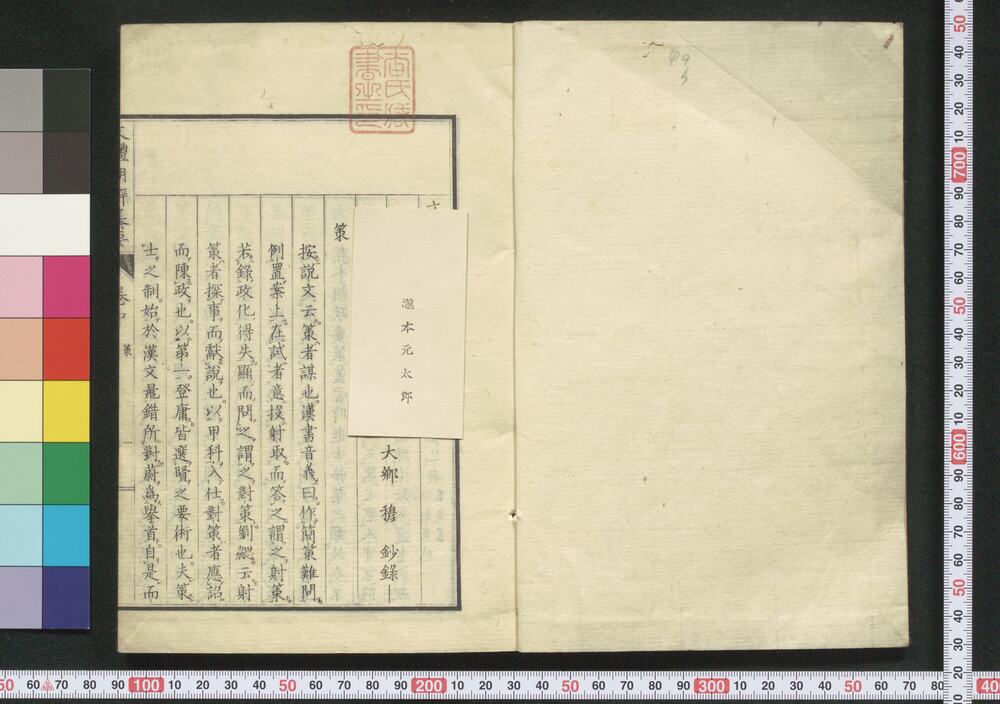 大鄉穆 鈔錄
策
按說文云策者謀也漢書音義曰作簡策難問
例置案上在試者意投射取而答之謂之射策
若錄政化得失顯而問之謂之對策劉勰云射
策者探事而獻說也以甲科入仕對策者應詔
而陳政也以第一登庸皆選賢之要術也夫策
士之制始於漢文鼂錯所對蔚為舉首自是而
策
瀧本元太郎